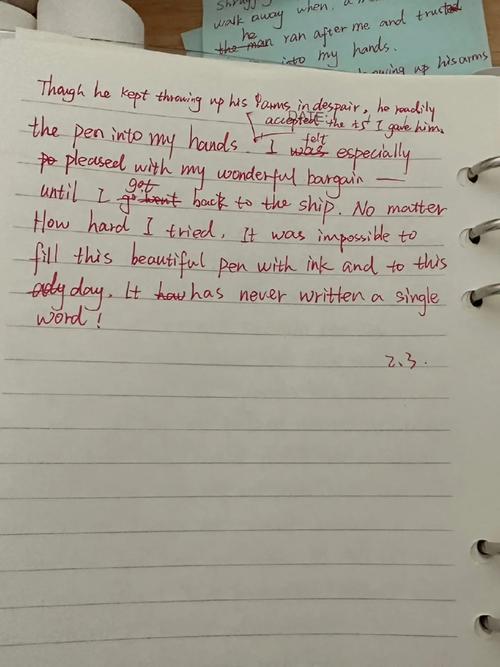 walk away when, a
he
the man ran after me and trusted
into my hands.
up his arms
Though he kept throwing up his arms in despair, he readily
accepted the £5 I gave him.
the pen into my hands. I was felt especially
pleased with my wonderful bargain —
until I go went got back to the ship. No matter
How hard I tried, It was impossible to
fill this beautiful pen with ink and to this
day. It how has never written a single
word!
2.3.